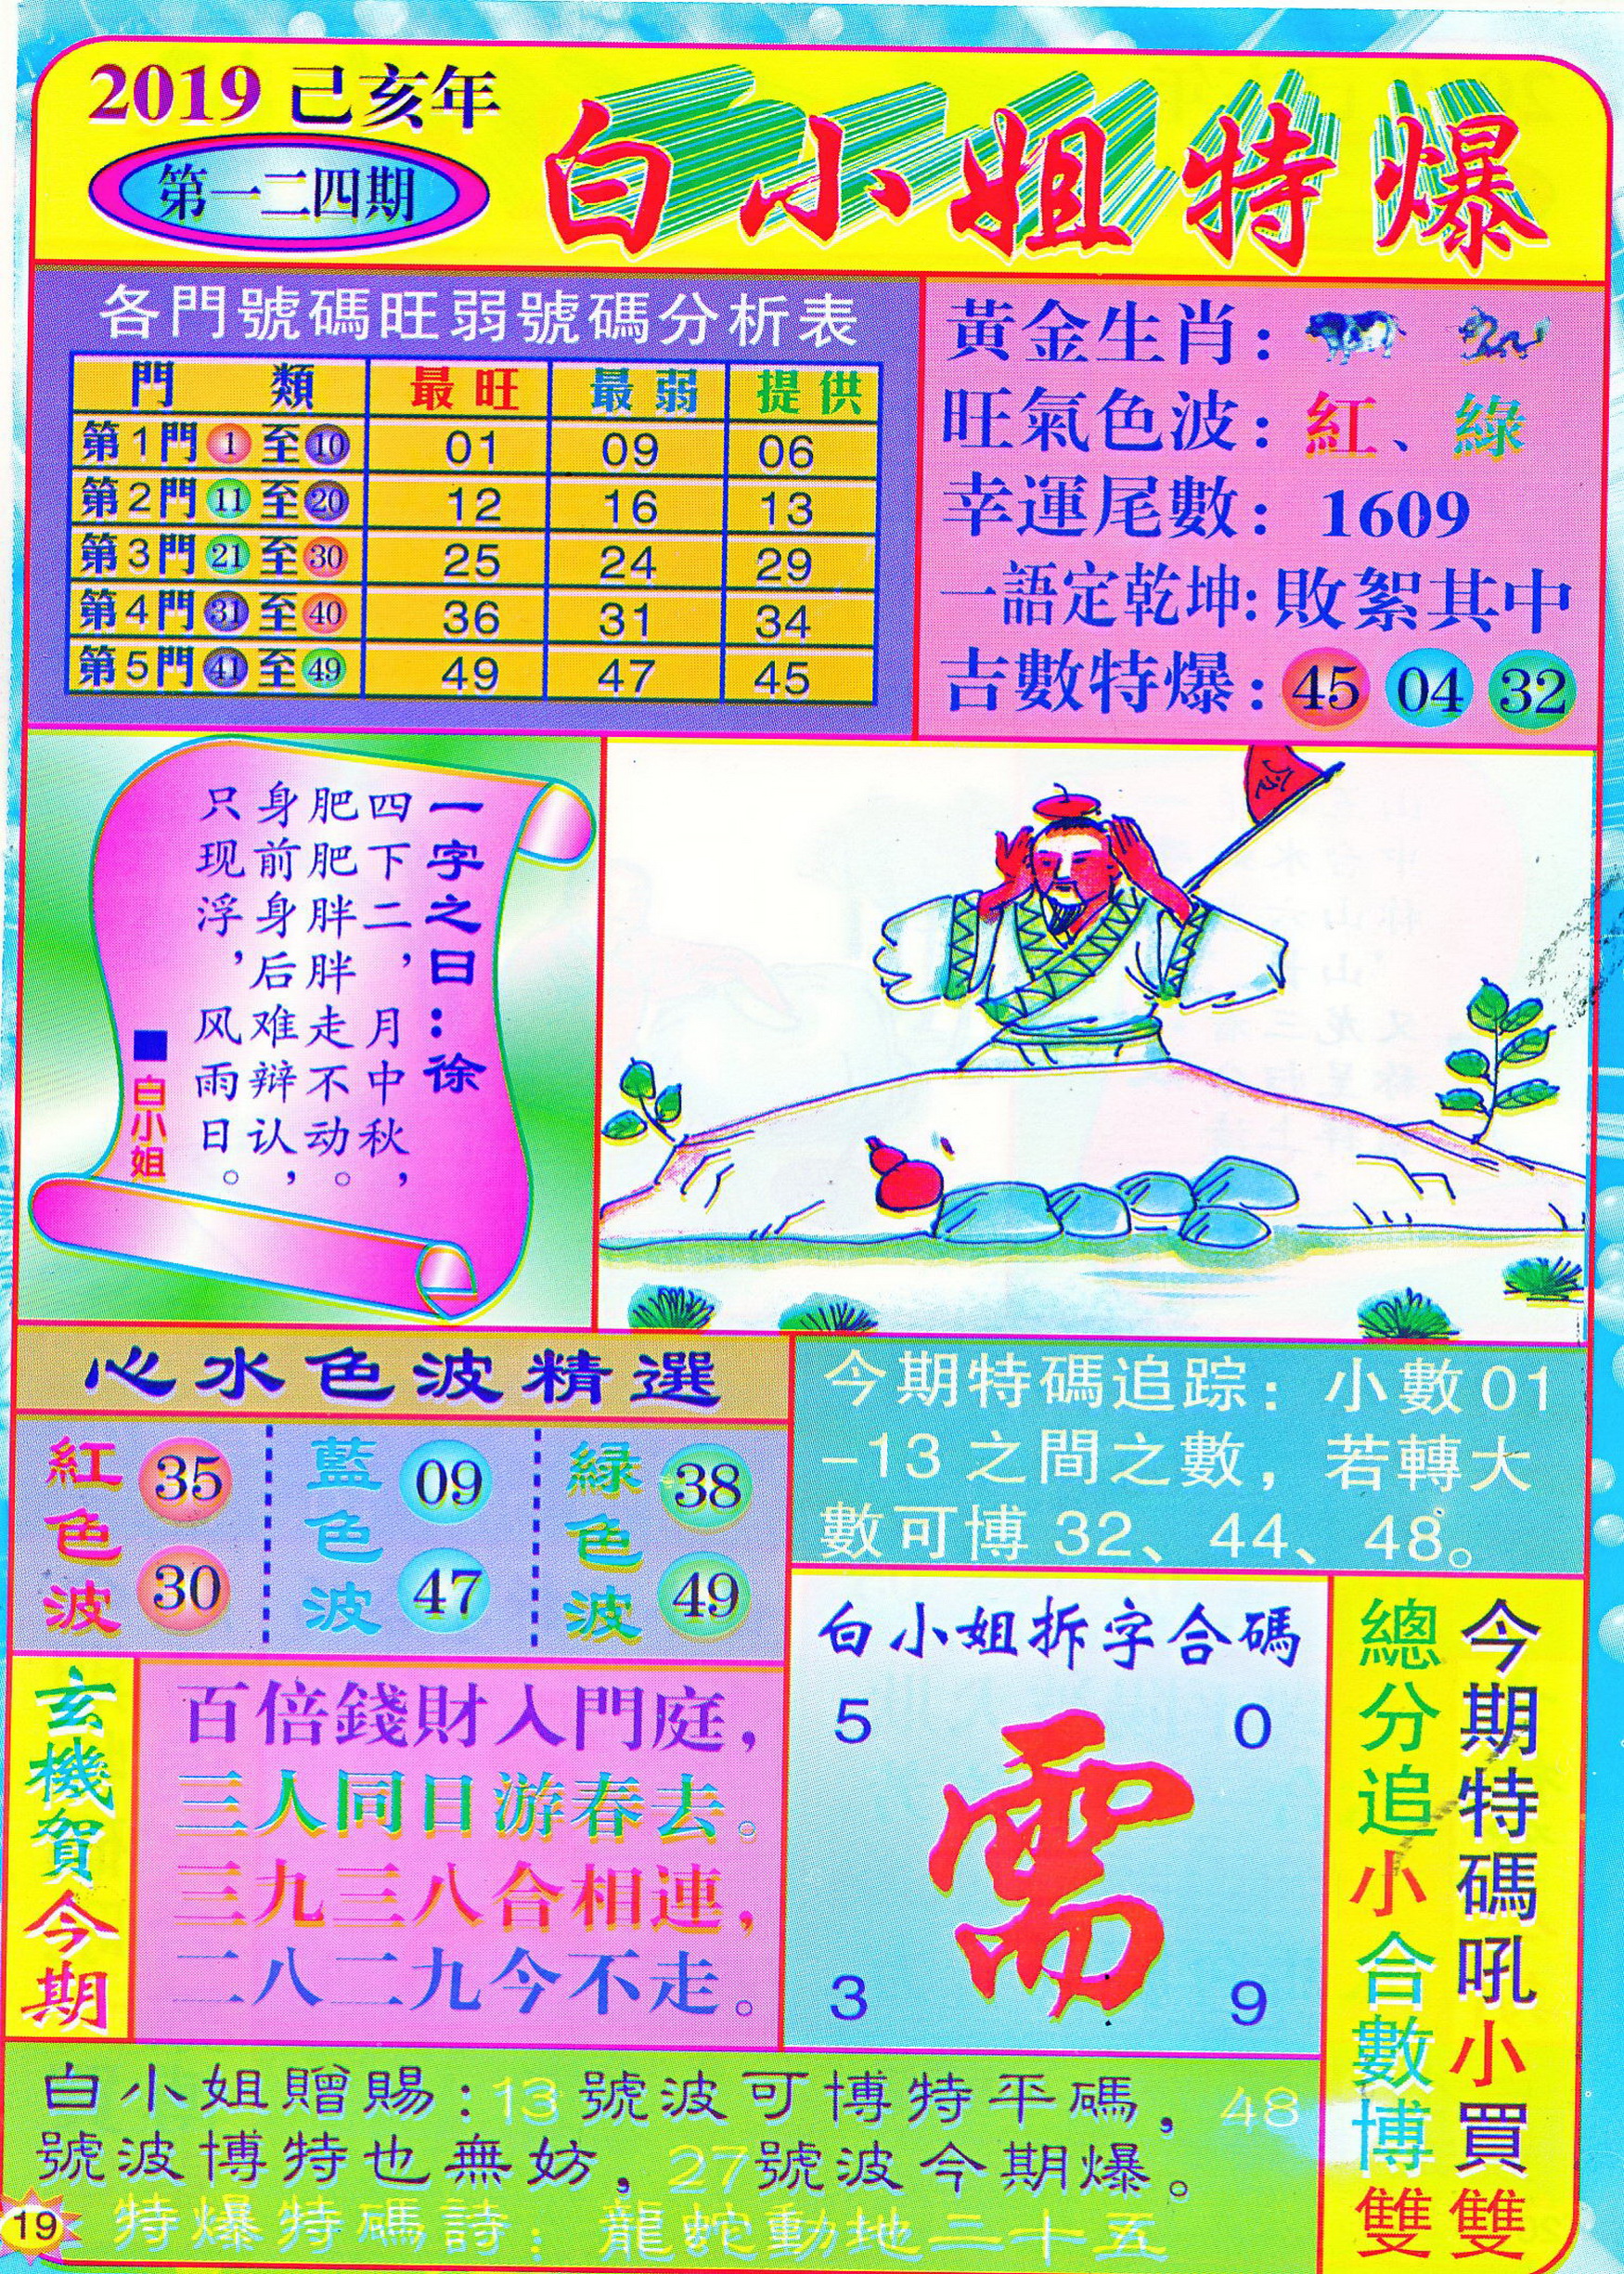 2019 己亥年
第一二四期
白小姐特爆
各門號碼旺弱號碼分析表
門 類 最旺 最弱 提供
第1門 1 至 10 01 09 06
第2門 11 至 20 12 16 13
第3門 21 至 30 25 24 29
第4門 31 至 40 36 31 34
第5門 41 至 49 49 47 45
黃金生肖：
旺氣色波：紅、綠
幸運尾數：1609
一語定乾坤:敗絮其中
吉數特爆：45 04 32
一字之曰：徐
四下二，月中秋，
肥肥胖胖走不动。
身前身后难辩认，
只现浮，风雨日。
■白小姐
心水色波精選
紅色波 35 30
藍色波 09 47
緑色波 38 49
今期特碼追踪：小數01
-13之間之數，若轉大
數可博32、44、48。
玄機賀今期
百倍錢財入門庭，
三人同日游春去。
三九三八合相連，
二八二九今不走。
白小姐拆字合碼
5 0
需
3 9
今期特碼吼小買雙
總分追小合數博雙
白小姐贈賜：13號波可博特平碼，48
號波博特也無妨，27號波今期爆。
特爆特碼詩：龍蛇動地二十五
19